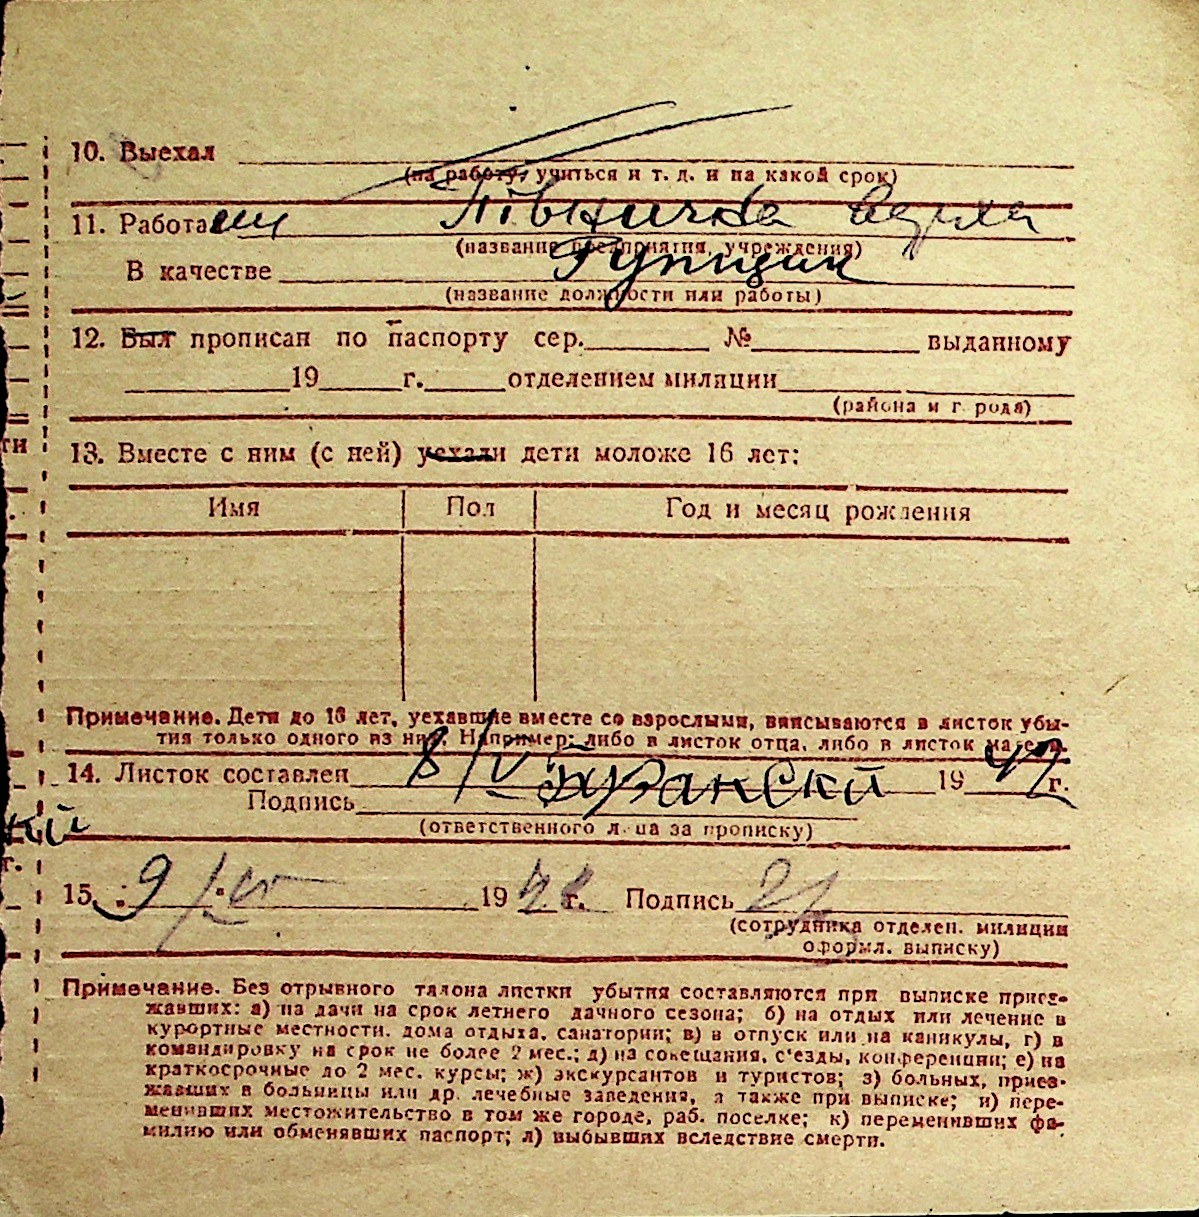 10. Выехал
(на работу, учиться и т. д. и на какой срок)
11. Работа
(название предприятия, учреждения)
В качестве
(название должности или работы)
12. Был прописан по паспорту сер. № выданному
19 г. отделением милиции
(района и г рода)
13. Вместе с ним (с ней) уехали дети моложе 16 лет:
Имя Пол Год и месяц рождения
Примечание. Дети до 16 лет, уехавшие вместе со взрослыми, вписываются в листок убы-
тия только одного из них. Например: либо в листок отца, либо в листок матери.
14. Листок составлен 8/V 1947 г.
Подпись
(ответственного лица за прописку)
кий
15. 9/ 19 г. Подпись
(сотрудника отделен. милиции
оформл. выписку)
Примечание. Без отрывного талона листки убытия составляются при выписке приез-
жавших: а) на дачи на срок летнего дачного сезона; б) на отдых или лечение в
курортные местности, дома отдыха, санатории; в) в отпуск или на каникулы, г) в
командировку на срок не более 2 мес.; д) на совещания, с'езды, конференции; е) на
краткосрочные до 2 мес. курсы; ж) экскурсантов и туристов; з) больных, приез-
жавших в больницы или др. лечебные заведения, а также при выписке; и) пере-
менивших местожительство в том же городе, раб. поселке; к) переменивших фа-
милию или обменявших паспорт; л) выбывших вследствие смерти.